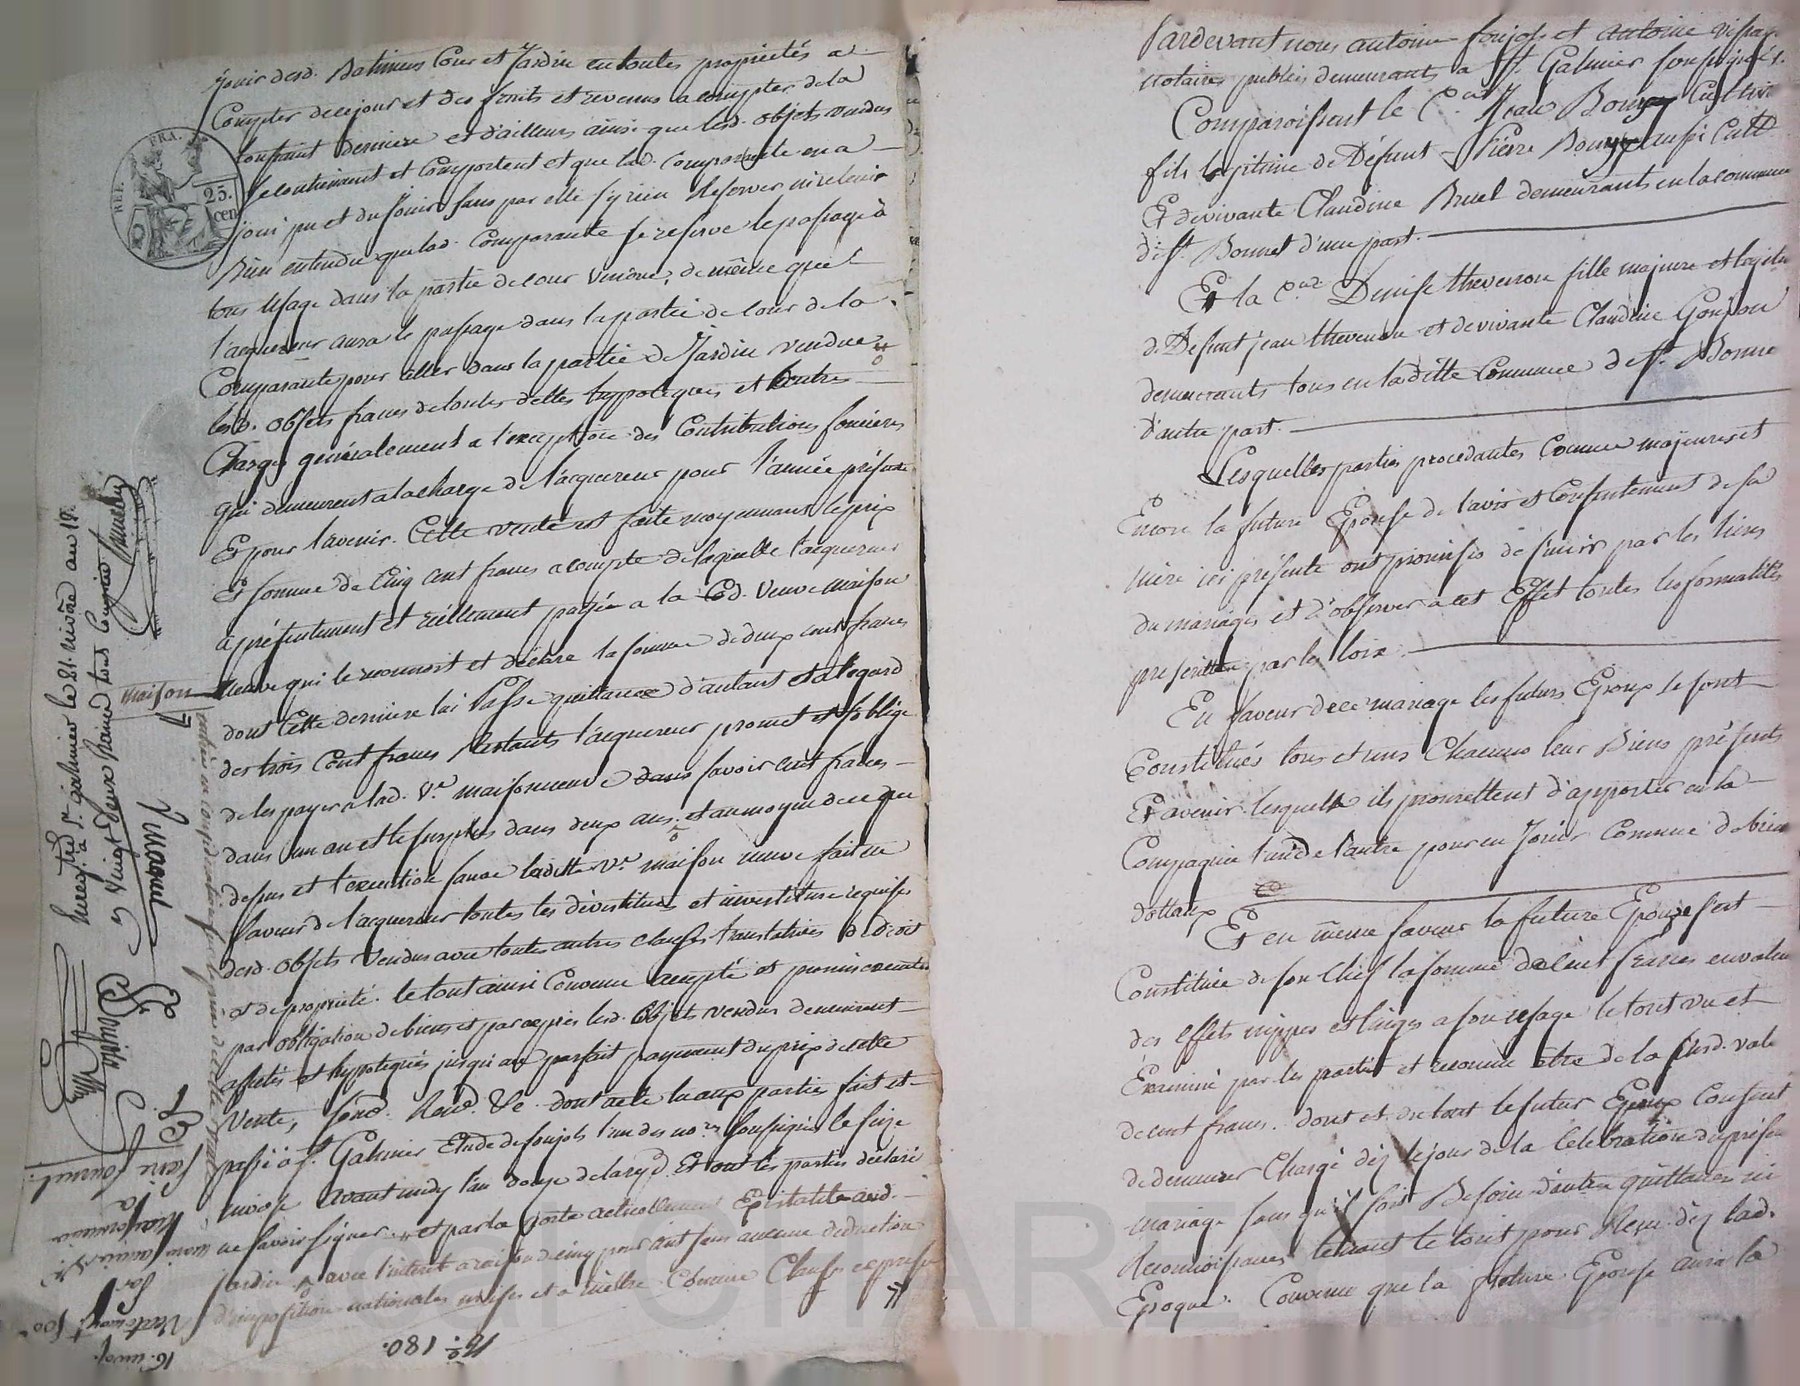 jouir desd. Batimens Cour et Jardin en toutes propriétés a
Compter de ce jour et des fruits et revenus a compter de la
toussaint derniere et d'ailleurs ainsi que lesd. objets vendus
se contiennent et Comportent et que lad. Comparante en a
joui pu et du jouir sans par elle s'y rien Reserver ni retenir
Bien entendu que lad. Comparante se reserve le passage à
tous Usage dans la partie de cour vendue, de même que
l'acquereur aura le passage dans la partie de cour de la
Comparante pour aller dans la partie de Jardin vendue
lesd. objets francs de toutes dettes hypoteques et autres
Charges généralement a l'exception des Contributions foncières
qui demeurent a la charge de l'acquereur pour l'année présente
Et pour l'avenir. Cette vente est faite moyennant le prix
Et somme de Cinq cent francs a compte de laquelle l'acquereur
a présentement et réellement payée a la Cod. Veuve maison
neuve qui le reconnoit et déclare la somme de deux cent francs
dont Cette derniere lui Passe quittance d'autant et a l'egard
des trois Cent francs Restants l'acquereur promet et s'oblige
de les payer a lad. Ve. maisonneuve dans savoir cent francs
dans un an et le surplus dans deux ans, et au moyen de ce que
dessus et l'execution sauve ladite Ve. maison neuve fait en
faveur de l'acquereur toutes les dévestitures et investiture requises
desd. objets Vendus avec toutes autres clauses translatives de droit
et de propriété. le tout ainsi Convenu accepté et promis executer
par obligation de biens et par exprès lesd. objets vendus demeurent
affectés et hypotequés jusqu'au parfait payement du prix de cette
Vente, Rend. &c. dont acte lu aux parties fait et
passé a St. Galmier Etude de foujols l'un des nores. soussignés le seize
nivose avant midy l'an douze de la rep. Et ont les parties déclaré
ne savoir signer. et par la porte actuellement Existante aud.
jardin avec l'interet a raison de cinq pour cent sans aucune deduction
d'imposition nationales mises et a mettre Comme Clause expresse
No. 180.
REP. FRA.
25. cen
maison
Enregistré à St. galmier le 21 nivôse an 12.
vingt deux francs tous Compris
16. nivose
Vente
500
par
maisonneuve
à
Pierre
Pardevant nous antoine foujols et antoine
notaires publics demeurants a St. Galmier soussignés.
Comparoissent le Cen. Jean Bouzy Cultiv
fils légitime de Défunt Pierre Bouzy aussi Cult
Et de vivante Claudine Bruel demeurants en la commune
de St. Bonnet d'une part.
Et la Cne. Denise thevenon fille majeure et legitime
de Défunt jean thevenon et de vivante Claudine Gonjon
demeurants tous en ladite Commune de St. Bonne
d'autre part.
Lesquelles parties procedantes Comme majeures et
Encore la future Epouse de l'avis et Consentement de sa
mère ici présente ont promises de s'unir par les liens
du mariage et d'observer a cet Effet toutes les formalités
prescrittes par les loix.
En faveur de ce mariage les futurs Epoux se sont
Constitués tous et uns Chacuns leur Biens présents
Et avenir lesquels ils promettent d'apporter en la
Compagnie l'un de l'autre pour en Jouir Comme de biens
dottaux
Et en même faveur la future Epouse s'est
Constituée de son Chef la somme de cent francs en valeur
des effets nippes et linges a son usage le tout vu et
Examiné par les parties et reconnu être de la susd. vale
de cent francs. dont et du tout le futur Epoux Consent
de demeurer Chargé dez le jour de la Célébration du présen
mariage sans qu'il soit Besoin d'autre quittance ni
Reconnoissance tenant le tout pour Reçu dez lad.
Epoque. Convenu que la future Epouse aura la